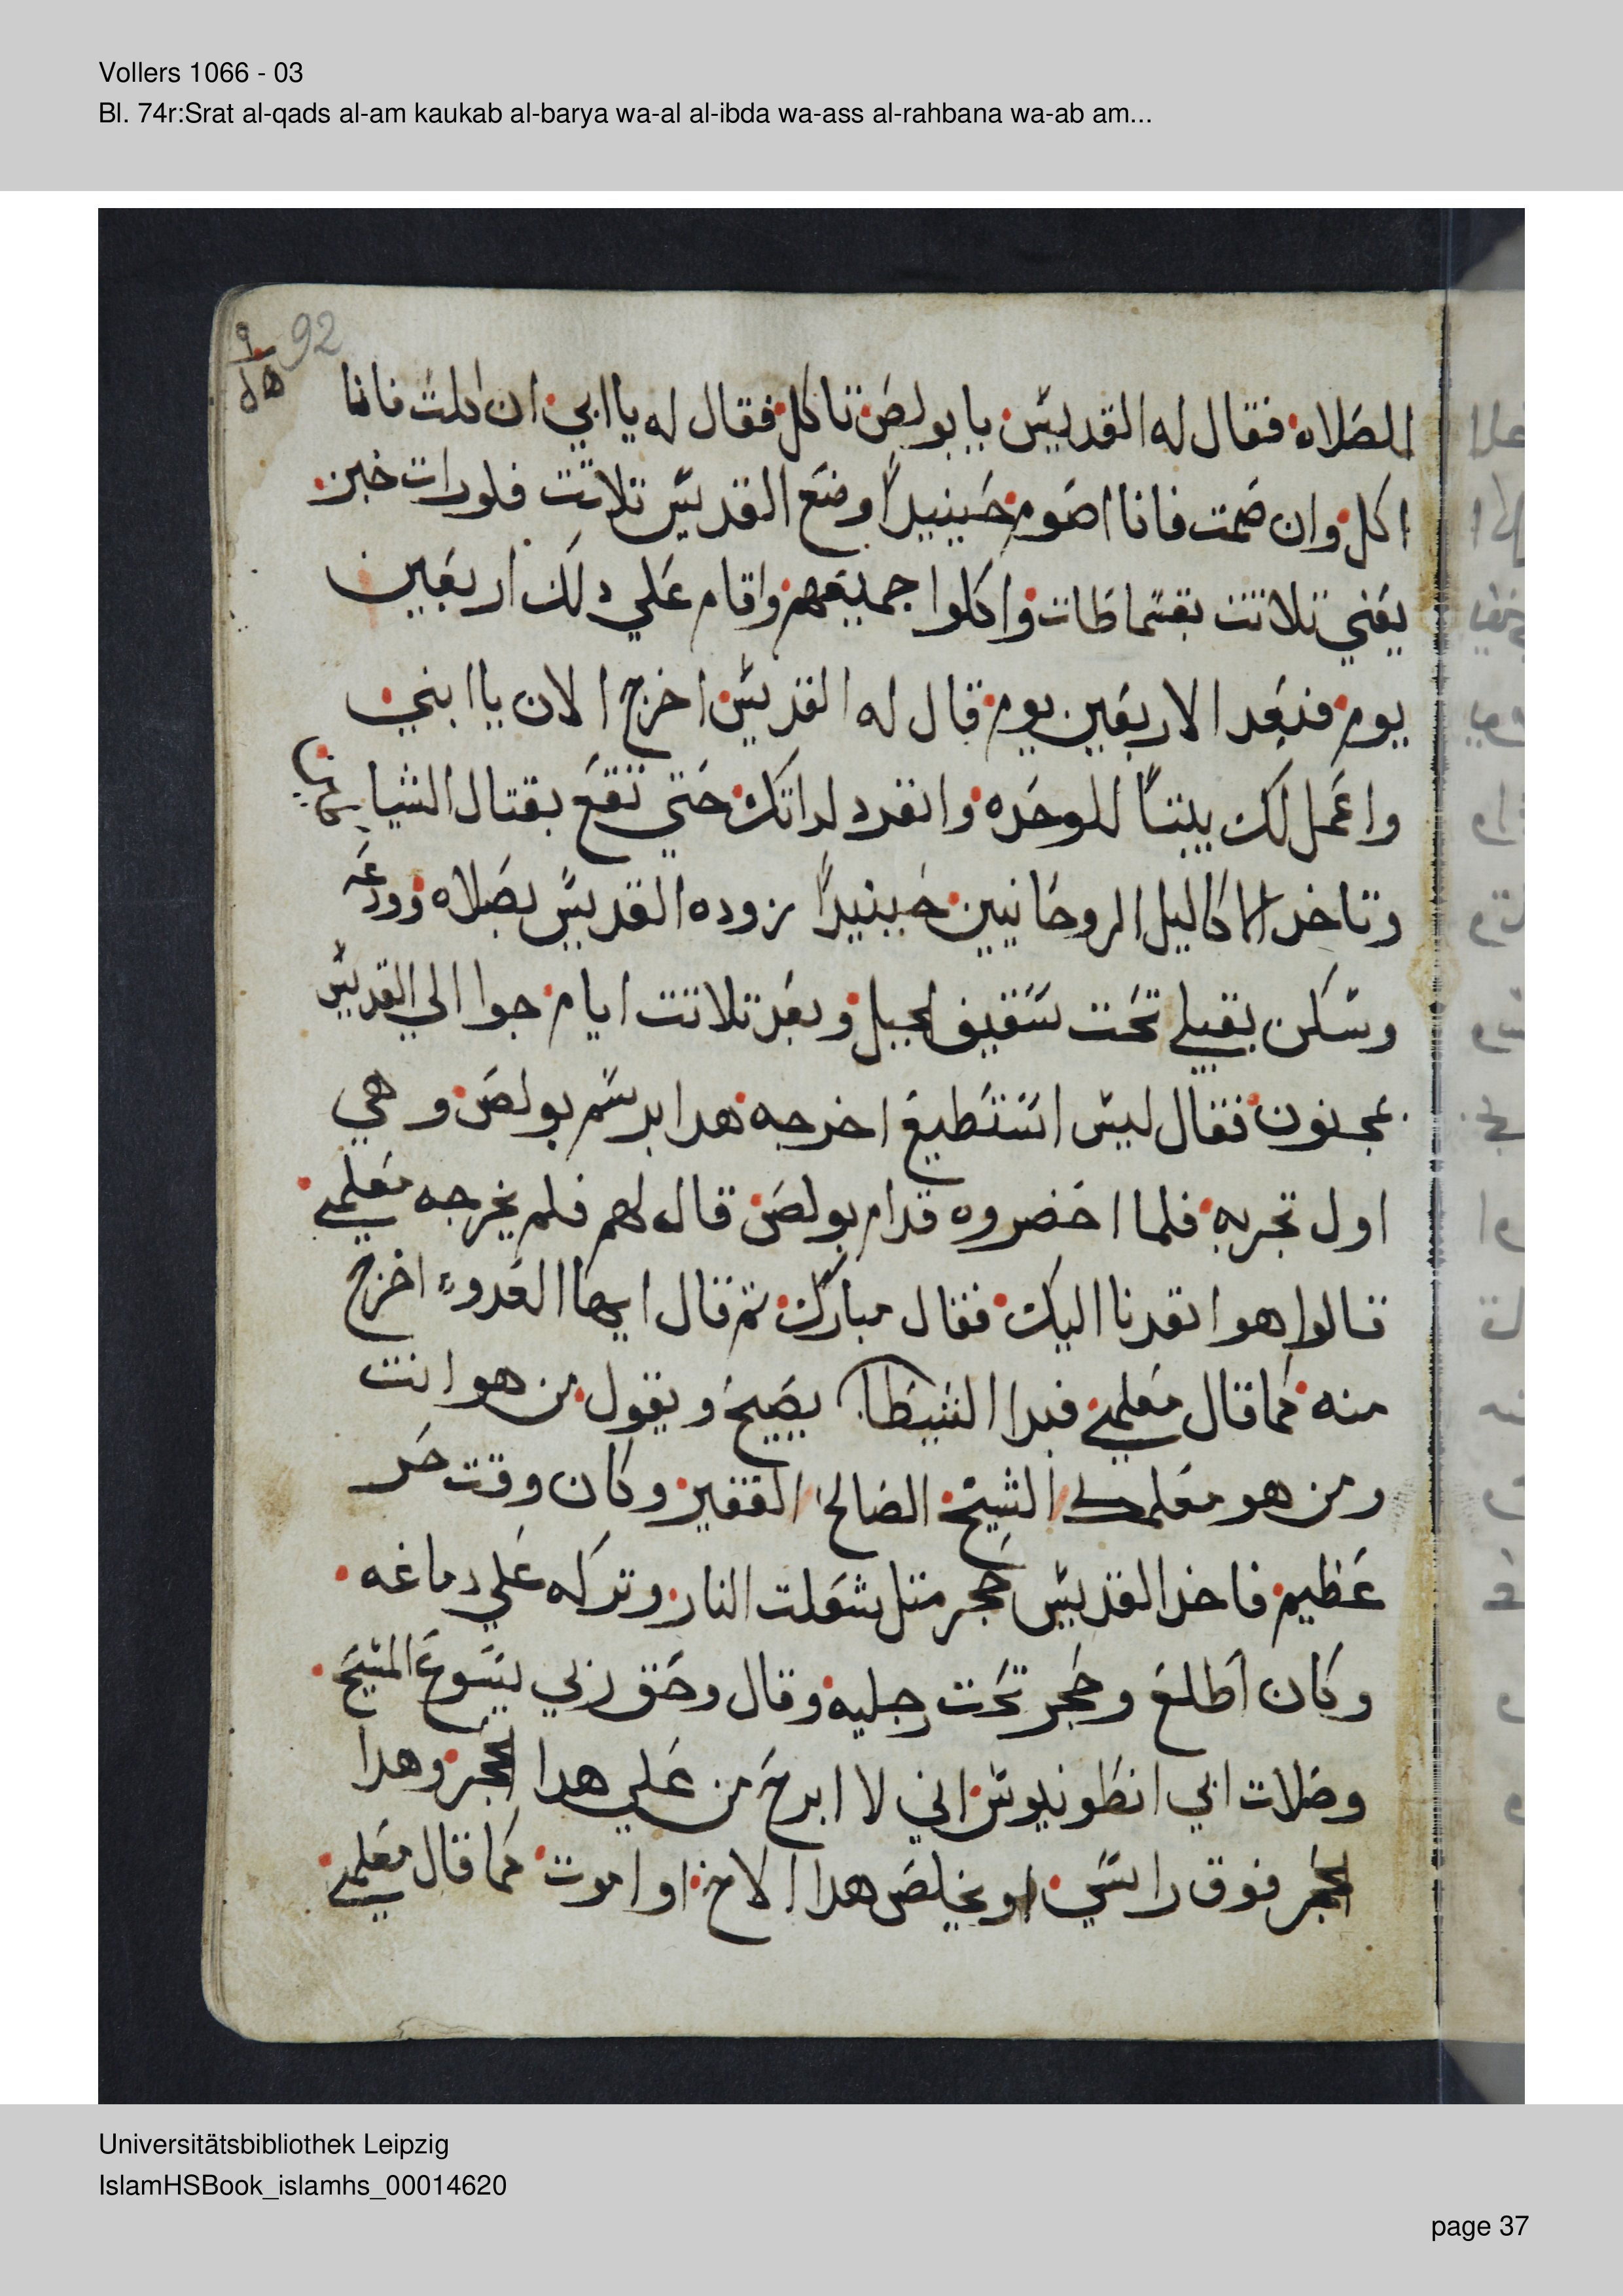 Vollers 1066 - 03
Bl. 74r:Srat al-qads al-am kaukab al-barya wa-al al-ibda wa-ass al-rahbana wa-ab am...
92
الصلاه فقال له القديس يا بولص تاكل فقال له يا ابي ان اكلت فانا
اكل وان صمت فانا اصوم حينيدا وضع القديس تلاتت فلورات خبز
يعني تلاتت بقسماطات واكلوا جميعهم واقام علي دلك اربعين
يوم فبعد الاربعين يوم قال له القديس اخرج الان يا ابني
واعمل لك بيتا للوحده وانفرد لداتك حتي تقع بقتال الشياطين
وتاخد الاكاليل الروحانيين حينيدا زوده القديس بصلاه وودعه
وسكن بقبلي تحت سقيف الجبل وبعد تلاتت ايام جوا الي القديس
بمجنون فقال ليس استطيع اخرجه هدا برسم بولص وهي
اول تجربه فلما احضروه قدام بولص قال لهم فلم يخرجه معلمي
قالوا هوا نفدنا اليك فقال مبارك تم قال ايها العدو اخرج
منه كما قال معلمي فبدا الشيطان يصيح ويقول من هو انت
ومن هو معلمك الشيخ الصالح الفقير وكان وقت حر
عظيم فاخد القديس حجر متل شعلت النار وتركه علي دماغه
وكان اطلع وحجر تحت رجليه وقال وحق ربي يسوع المسيح
وصلات ابي انطونيوس اني لا ابرح من علي هدا الحجر وهدا
الحجر فوق راسي او يخلص هدا الاخ او اموت كما قال معلمي
Universitätsbibliothek Leipzig
IslamHSBook_islamhs_00014620
page 37